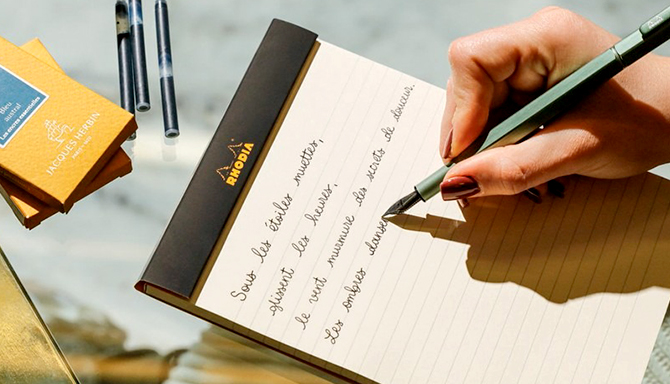 Bleu
austral
Les encres essentielles
JACQUES HERBIN
RHODIA
Sous les étoiles muettes,
glissent les heures,
le vent murmure des secrets de douceur.
Les ombres danse